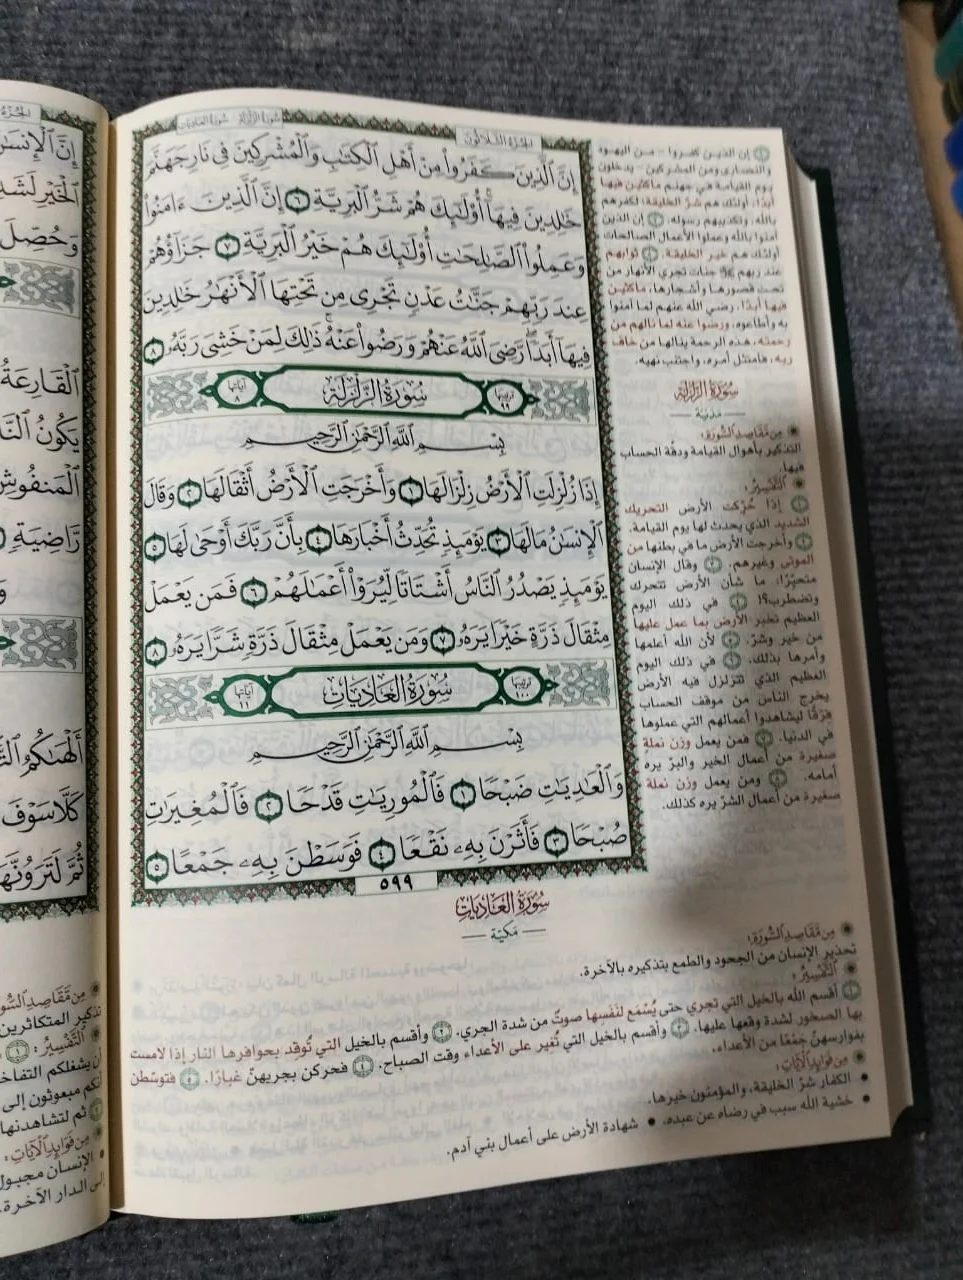 سُورَةُ الزَّلْزَلَةِ سُورَةُ العَادِيَاتِ
الجُزْءُ الثَّلَاثُونَ
إِنَّ ٱلَّذِينَ كَفَرُواْ مِنْ أَهْلِ ٱلْكِتَٰبِ وَٱلْمُشْرِكِينَ فِى نَارِ جَهَنَّمَ
خَٰلِدِينَ فِيهَآ أُوْلَٰٓئِكَ هُمْ شَرُّ ٱلْبَرِيَّةِ ٦ إِنَّ ٱلَّذِينَ ءَامَنُواْ
وَعَمِلُواْ ٱلصَّٰلِحَٰتِ أُوْلَٰٓئِكَ هُمْ خَيْرُ ٱلْبَرِيَّةِ ٧ جَزَآؤُهُمْ
عِندَ رَبِّهِمْ جَنَّٰتُ عَدْنٍ تَجْرِى مِن تَحْتِهَا ٱلْأَنْهَٰرُ خَٰلِدِينَ
فِيهَآ أَبَدًا رَّضِىَ ٱللَّهُ عَنْهُمْ وَرَضُواْ عَنْهُ ذَٰلِكَ لِمَنْ خَشِىَ رَبَّهُۥ ٨
ترتيبها ٩٩ سُورَةُ الزَّلْزَلَةِ آياتها ٨
بِسْمِ ٱللَّهِ ٱلرَّحْمَٰنِ ٱلرَّحِيمِ
إِذَا زُلْزِلَتِ ٱلْأَرْضُ زِلْزَالَهَا ١ وَأَخْرَجَتِ ٱلْأَرْضُ أَثْقَالَهَا ٢ وَقَالَ
ٱلْإِنسَٰنُ مَا لَهَا ٣ يَوْمَئِذٍ تُحَدِّثُ أَخْبَارَهَا ٤ بِأَنَّ رَبَّكَ أَوْحَىٰ لَهَا ٥
يَوْمَئِذٍ يَصْدُرُ ٱلنَّاسُ أَشْتَاتًا لِّيُرَوْاْ أَعْمَٰلَهُمْ ٦ فَمَن يَعْمَلْ
مِثْقَالَ ذَرَّةٍ خَيْرًا يَرَهُۥ ٧ وَمَن يَعْمَلْ مِثْقَالَ ذَرَّةٍ شَرًّا يَرَهُۥ ٨
ترتيبها ١٠٠ سُورَةُ العَادِيَاتِ آياتها ١١
بِسْمِ ٱللَّهِ ٱلرَّحْمَٰنِ ٱلرَّحِيمِ
وَٱلْعَٰدِيَٰتِ ضَبْحًا ١ فَٱلْمُورِيَٰتِ قَدْحًا ٢ فَٱلْمُغِيرَٰتِ
صُبْحًا ٣ فَأَثَرْنَ بِهِۦ نَقْعًا ٤ فَوَسَطْنَ بِهِۦ جَمْعًا ٥
٥٩٩
٦ إن الذين كفروا - من اليهود
والنصارى ومن المشركين - يدخلون
يوم القيامة في جهنم ماكثين فيها
أبدًا، أولئك هم شرّ الخليقة؛ لكفرهم
بالله، وتكذيبهم رسوله. ٧ إن الذين
آمنوا بالله وعملوا الأعمال الصالحات
أولئك هم خير الخليقة. ٨ ثوابهم
عند ربهم ﷻ جنات تجري الأنهار من
تحت قصورها وأشجارها، ماكثين
فيها أبدًا، رضي الله عنهم لما آمنوا
به وأطاعوه، ورضوا عنه لما نالهم من
رحمته، هذه الرحمة ينالها من خاف
ربه، فامتثل أمره، واجتنب نهيه.
سُورَةُ الزَّلْزَلَةِ
— مَدَنيّة —
مِن مَّقَاصِدِ السُّورَةِ:
التذكير بأهوال القيامة ودقّة الحساب
فيها.
التَّفْسِيرُ:
١ إذا حُرّكت الأرض التحريك
الشديد الذي يحدث لها يوم القيامة.
٢ وأخرجت الأرض ما في بطنها من
الموتى وغيرهم. ٣ وقال الإنسان
متحيّرًا: ما شأن الأرض تتحرك
وتضطرب؟! ٤ في ذلك اليوم
العظيم تخبر الأرض بما عمل عليها
من خير وشرّ. ٥ لأن الله أعلمها
وأمرها بذلك. ٦ في ذلك اليوم
العظيم الذي تتزلزل فيه الأرض
يخرج الناس من موقف الحساب
فرقًا ليشاهدوا أعمالهم التي عملوها
في الدنيا. ٧ فمن يعمل وزن نملة
صغيرة من أعمال الخير والبرّ يره
أمامه. ٨ ومن يعمل وزن نملة
صغيرة من أعمال الشرّ يره كذلك.
سُورَةُ العَادِيَاتِ
— مَكيّة —
مِن مَّقَاصِدِ السُّورَةِ:
تحذير الإنسان من الجحود والطمع بتذكيره بالآخرة.
التَّفْسِيرُ:
١ أقسم الله بالخيل التي تجري حتى يُسْمَع لنَفَسها صوتٌ من شدة الجري. ٢ وأقسم بالخيل التي تُوقِد بحوافرها النار إذا لامست
بها الصخور لشدة وقعها عليها. ٣ وأقسم بالخيل التي تُغِير على الأعداء وقت الصباح. ٤ فحركن بجريهنّ غبارًا. ٥ فتوسّطن
بفوارسهنّ جَمْعًا من الأعداء.
مِن فَوَائِدِ الآيَاتِ:
الكفار شرّ الخليقة، والمؤمنون خيرها.
خشية الله سبب في رضاه عن عبده. • شهادة الأرض على أعمال بني آدم.
إِنَّ ٱلْإِنسَٰنَ
ٱلْخَيْرِ لَشَدِيدٌ
وَحُصِّلَ
ٱلْقَارِعَةُ
يَكُونُ ٱلنَّاسُ
ٱلْمَنفُوشِ
رَّاضِيَةٍ
أَلْهَىٰكُمُ
كَلَّا سَوْفَ
ثُمَّ لَتَرَوُنَّهَا
مِن مَّقَاصِدِ السُّورَةِ
تذكير المتكاثرين
التَّفْسِيرُ: ١
ثم لتشاهدنها
مِن فَوَائِدِ الآيَاتِ:
الإنسان مجبول
إلى الدار الآخرة.